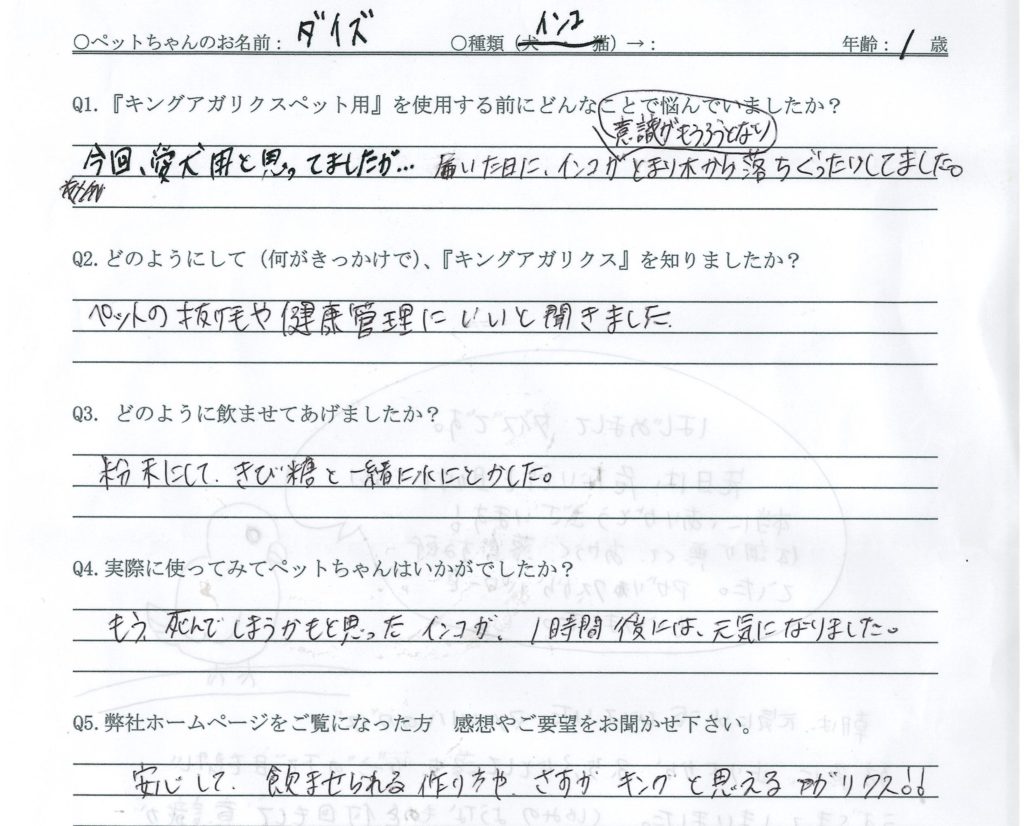 ○ペットちゃんのお名前：ダイズ ○種類（犬 猫）→： インコ 年齢：1 歳
Q1.『キングアガリクスペット用』を使用する前にどんなことで悩んでいましたか？
意識がもうろうとなり
今回、愛犬用と思ってましたが… 届いた日に、インコがとまり木から落ちぐったりしてました。
Q2.どのようにして（何がきっかけで）、『キングアガリクス』を知りましたか？
ペットの抜け毛や健康管理にいいと聞きました.
Q3. どのように飲ませてあげましたか？
粉末にして、きび糖と一緒に水にとかした。
Q4.実際に使ってみてペットちゃんはいかがでしたか？
もう、死んでしまうかもと思ったインコが、1時間後には、元気になりました。
Q5.弊社ホームページをご覧になった方 感想やご要望をお聞かせ下さい。
安心して、飲ませられる作り方や、さすがキングと思えるアガリクス!!